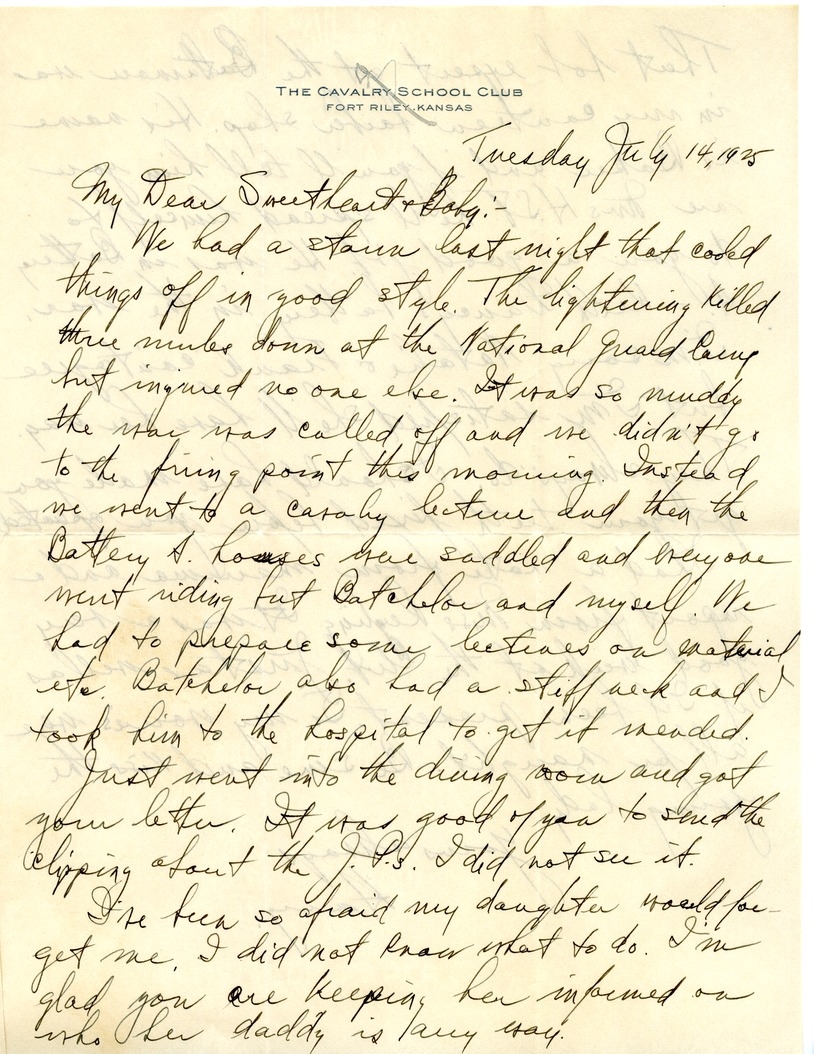 THE CAVALRY SCHOOL CLUB
FORT RILEY, KANSAS
Tuesday July 14, 1925
My Dear Sweetheart & Baby:-
We had a storm last night that cooled
things off in good style. The lightening killed
three mules down at the National Guard Camp
but injured no one else. It was so muddy
the war was called off and we didn't go
to the firing point this morning. Instead
we went to a cavalry lecture and then the
Battery A. horses were saddled and everyone
went riding but Batchelor and myself. We
had to prepare some lectures on material
etc. Batchelor also had a stiff neck and I
took him to the hospital to get it mended.
Just went into the dining room and got
your letter. It was good of you to send the
clipping about the J.P.s. I did not see it.
I've been so afraid my daughter would for-
get me, I did not know what to do. I'm
glad you are keeping her informed on
who her daddy is any way.